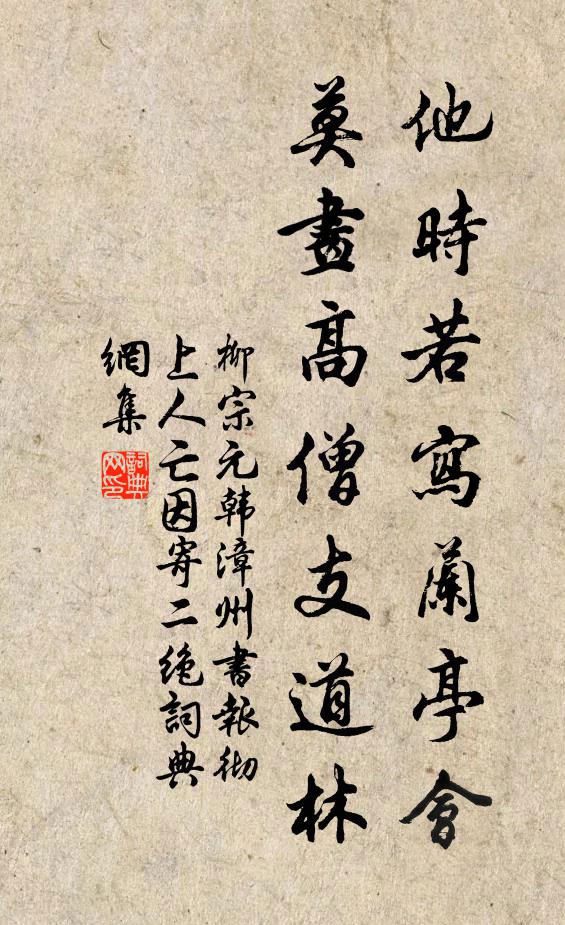 他時若寫蘭亭會
莫畫高僧支道林
柳宗元韩漳州書報彻
上人亡因寄二绝詞典
網集
詞典
网印